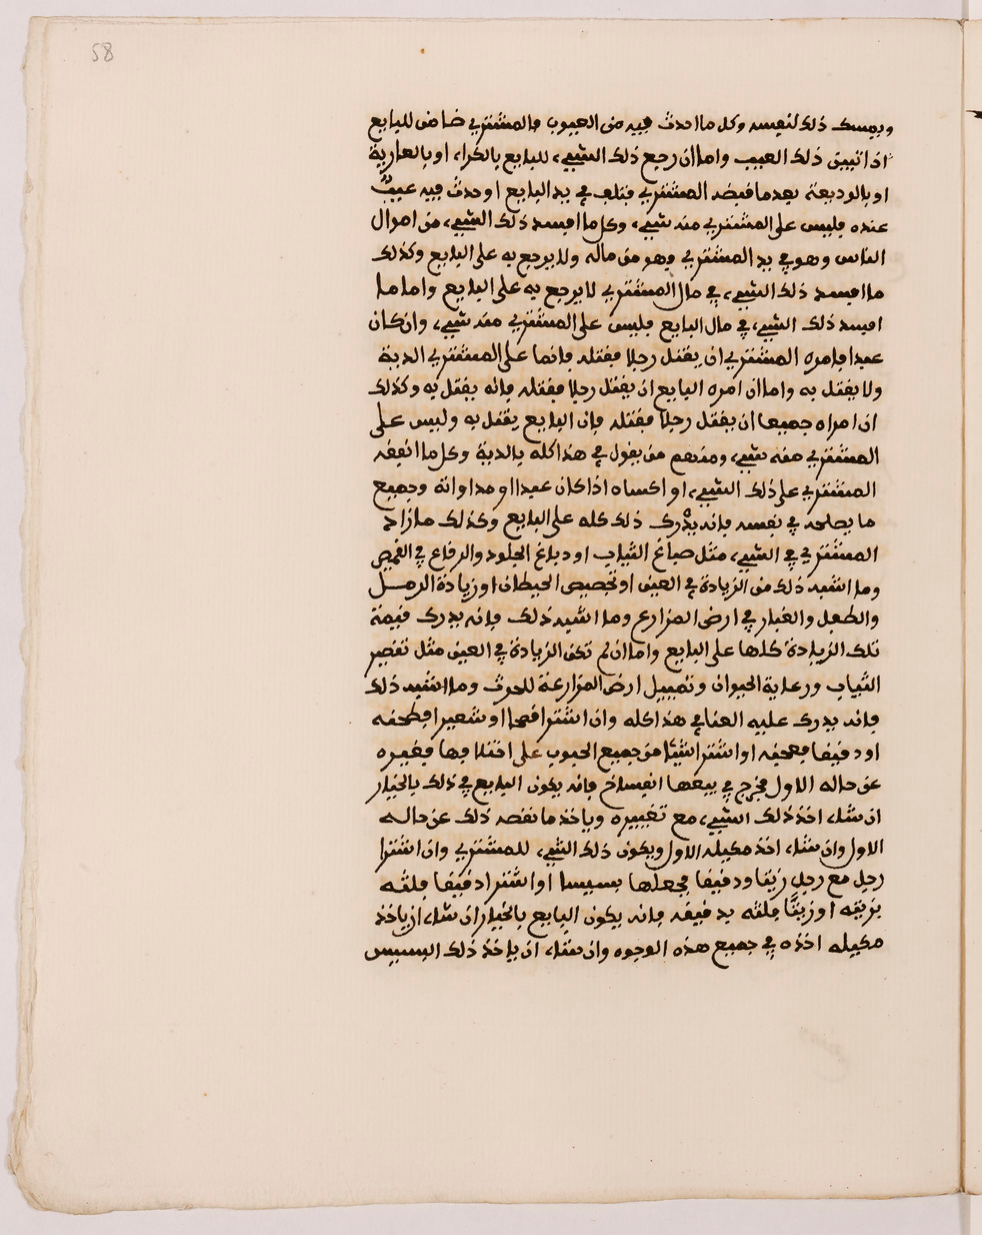 58
ويمسك ذلك لنفسه وكل ما احدث فيه من العيوب فالمشتري ضامن للبايع
اذا تبين ذلك العيب واما ان رجع ذلك الشيء للبايع بالكراء او بالعارية
او بالوديعة بعد ما قبضه المشتري فتلف في يد البايع او حدث فيه عيبٌ
عنده فليس على المشتري منه شيء وكل ما افسد ذلك الشيء من اموال
الناس وهو في يد المشتري فهو من ماله ولا يرجع به على البايع وكذلك
ما افسد ذلك الشيء في مال المشتري لا يرجع به على البايع واما ما
افسد ذلك الشيء في مال البايع فليس على المشتري منه شيء وان كان
عبدا فامره المشتري ان يقتل رجلا فقتله فانما على المشتري الدية
ولا يقتل به واما ان امره البايع ان يقتل رجلا فقتله فانه يقتل به وكذلك
ان امراه جميعا ان يقتل رجلا فقتله فان البايع يقتل به وليس على
المشتري منه شيء ومنهم من يقول في هذا كله بالدية وكل ما انفقه
المشتري على ذلك الشيء او اكساه اذا كان عبدا او مداواته وجميع
ما يصلحه في نفسه فانه يدرك ذلك كله على البايع وكذلك ما زاد
المشتري في الشيء مثل صباغ الثياب او دباغ الجلود والرقاع في القميص
وما اشبه ذلك من الزيادة في العين او تجصيص الحيطان او زيادة الرمل
والطفل والغبار في ارض المزارع وما اشبه ذلك فانه يدرك قيمة
تلك الزيادة كلها على البايع واما ان لم تكن الزيادة في العين مثل تقصير
الثياب ورعاية الحيوان وتمييل ارض المزارعة للحرث وما اشبه ذلك
فانه يدرك عليه العنا في هذا كله وان اشترا قمحا او شعيرا فطحنه
او دقيقا فعجنه او اشترا شيئا من جميع الحبوب على اختلافها فغيره
عن حاله الاول فخرج في بيعها انفساخ فانه يكون البايع في ذلك بالخيار
ان شاء اخذ ذلك الشيء مع تغييره وياخذ ما نقصه ذلك عن حاله
الاول وان شاء اخذ مكيله الاول ويكون ذلك الشيء للمشتري وان اشترا
رجل مع رجل زيتا ودقيقا فجعلها بسيسا او اشترا دقيقا فلته
بزيته او زيتًا فلته بدقيقه فانه يكون البايع بالخيار ان شاء ان ياخذ
مكيله اخذه في جميع هذه الوجوه وان شاء ان ياخذ ذلك البسيس